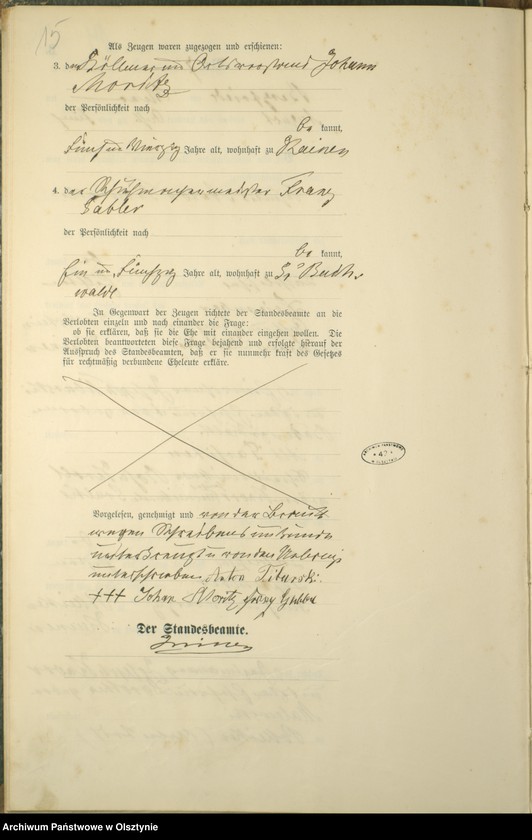 15
Als Zeugen waren zugezogen und erschienen:
3. der Köllmer und Ortsvorstand Johann
Moritz
der Persönlichkeit nach
be kannt,
fünf und vierzig Jahre alt, wohnhaft zu Kainen
4. der Schuhmachermeister Franz
der Persönlichkeit nach
be kannt,
ein und fünfzig Jahre alt, wohnhaft zu Gr. Buch-
walde
In Gegenwart der Zeugen richtete der Standesbeamte an die
Verlobten einzeln und nach einander die Frage:
ob sie erklären, daß sie die Ehe mit einander eingehen wollen. Die
Verlobten beantworteten diese Frage bejahend und erfolgte hierauf der
Ausspruch des Standesbeamten, daß er sie nunmehr kraft des Gesetzes
für rechtmäßig verbundene Eheleute erkläre.
ARCHIWUM PAŃSTWOWE
* 47 *
W OLSZTYNIE
Vorgelesen, genehmigt und von der Braut
wegen Schreibensunkunde
unterkreuzt u von den Uebrigen
unterschrieben Anton
+++ Johan Moritz Franz
Der Standesbeamte.
Archiwum Państwowe w Olsztynie